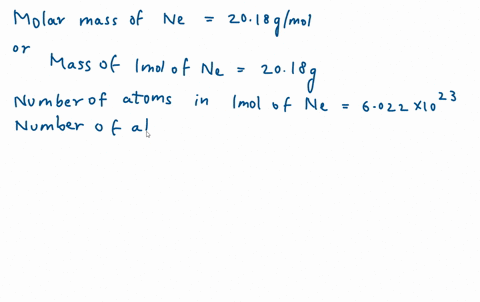 Molar mass of Ne = 20.18g/mol
or
Mass of 1mol of Ne = 20.18g
Number of atoms in 1mol of Ne = 6.022 × 10^23
Number of al